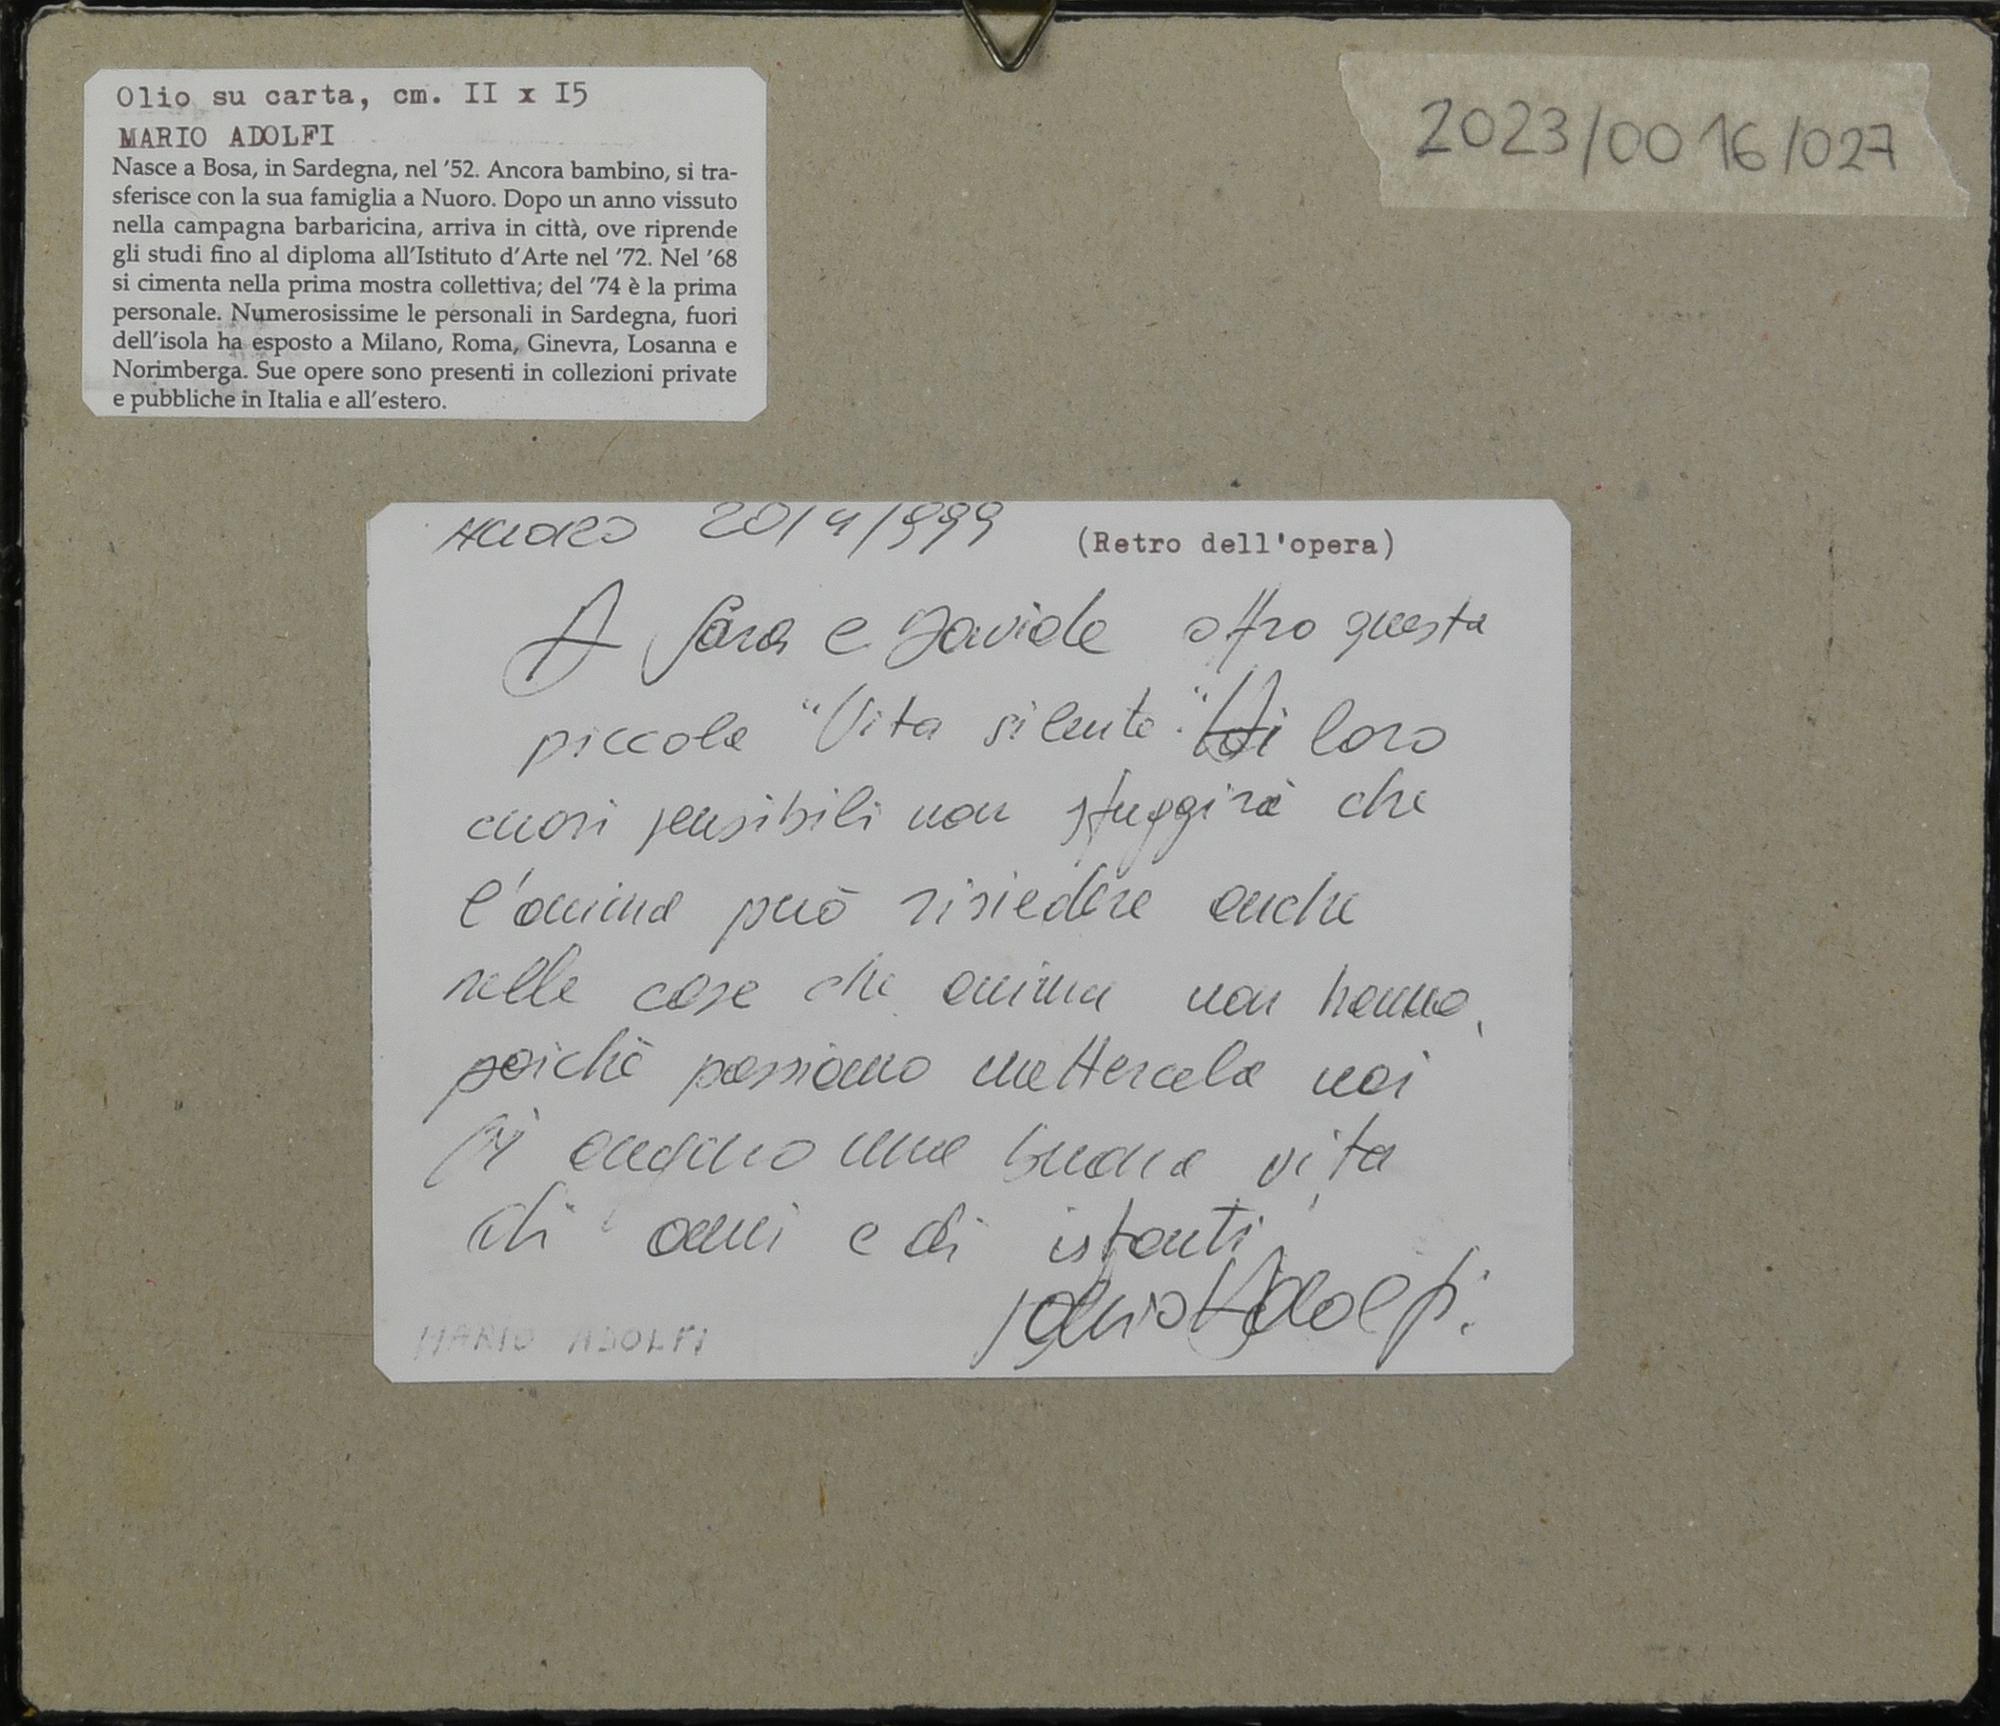 Olio su carta, cm. II x I5
MARIO ADOLFI
Nasce a Bosa, in Sardegna, nel '52. Ancora bambino, si tra-
sferisce con la sua famiglia a Nuoro. Dopo un anno vissuto
nella campagna barbaricina, arriva in città, ove riprende
gli studi fino al diploma all'Istituto d'Arte nel '72. Nel '68
si cimenta nella prima mostra collettiva; del '74 è la prima
personale. Numerosissime le personali in Sardegna, fuori
dell'isola ha esposto a Milano, Roma, Ginevra, Losanna e
Norimberga. Sue opere sono presenti in collezioni private
e pubbliche in Italia e all'estero.
2023/0016/027
Nuoro 20/4/999
(Retro dell'opera)
A Sara e Davide offro questa
piccola "Vita silente." Ai loro
cuori sensibili non sfuggirà che
l'anima può risiedere anche
nelle cose che anima non hanno,
poiché possiamo mettercela noi
Vi auguro una buona vita
di anni e di istanti
Mario Adolfi.
MARIO ADOLFI